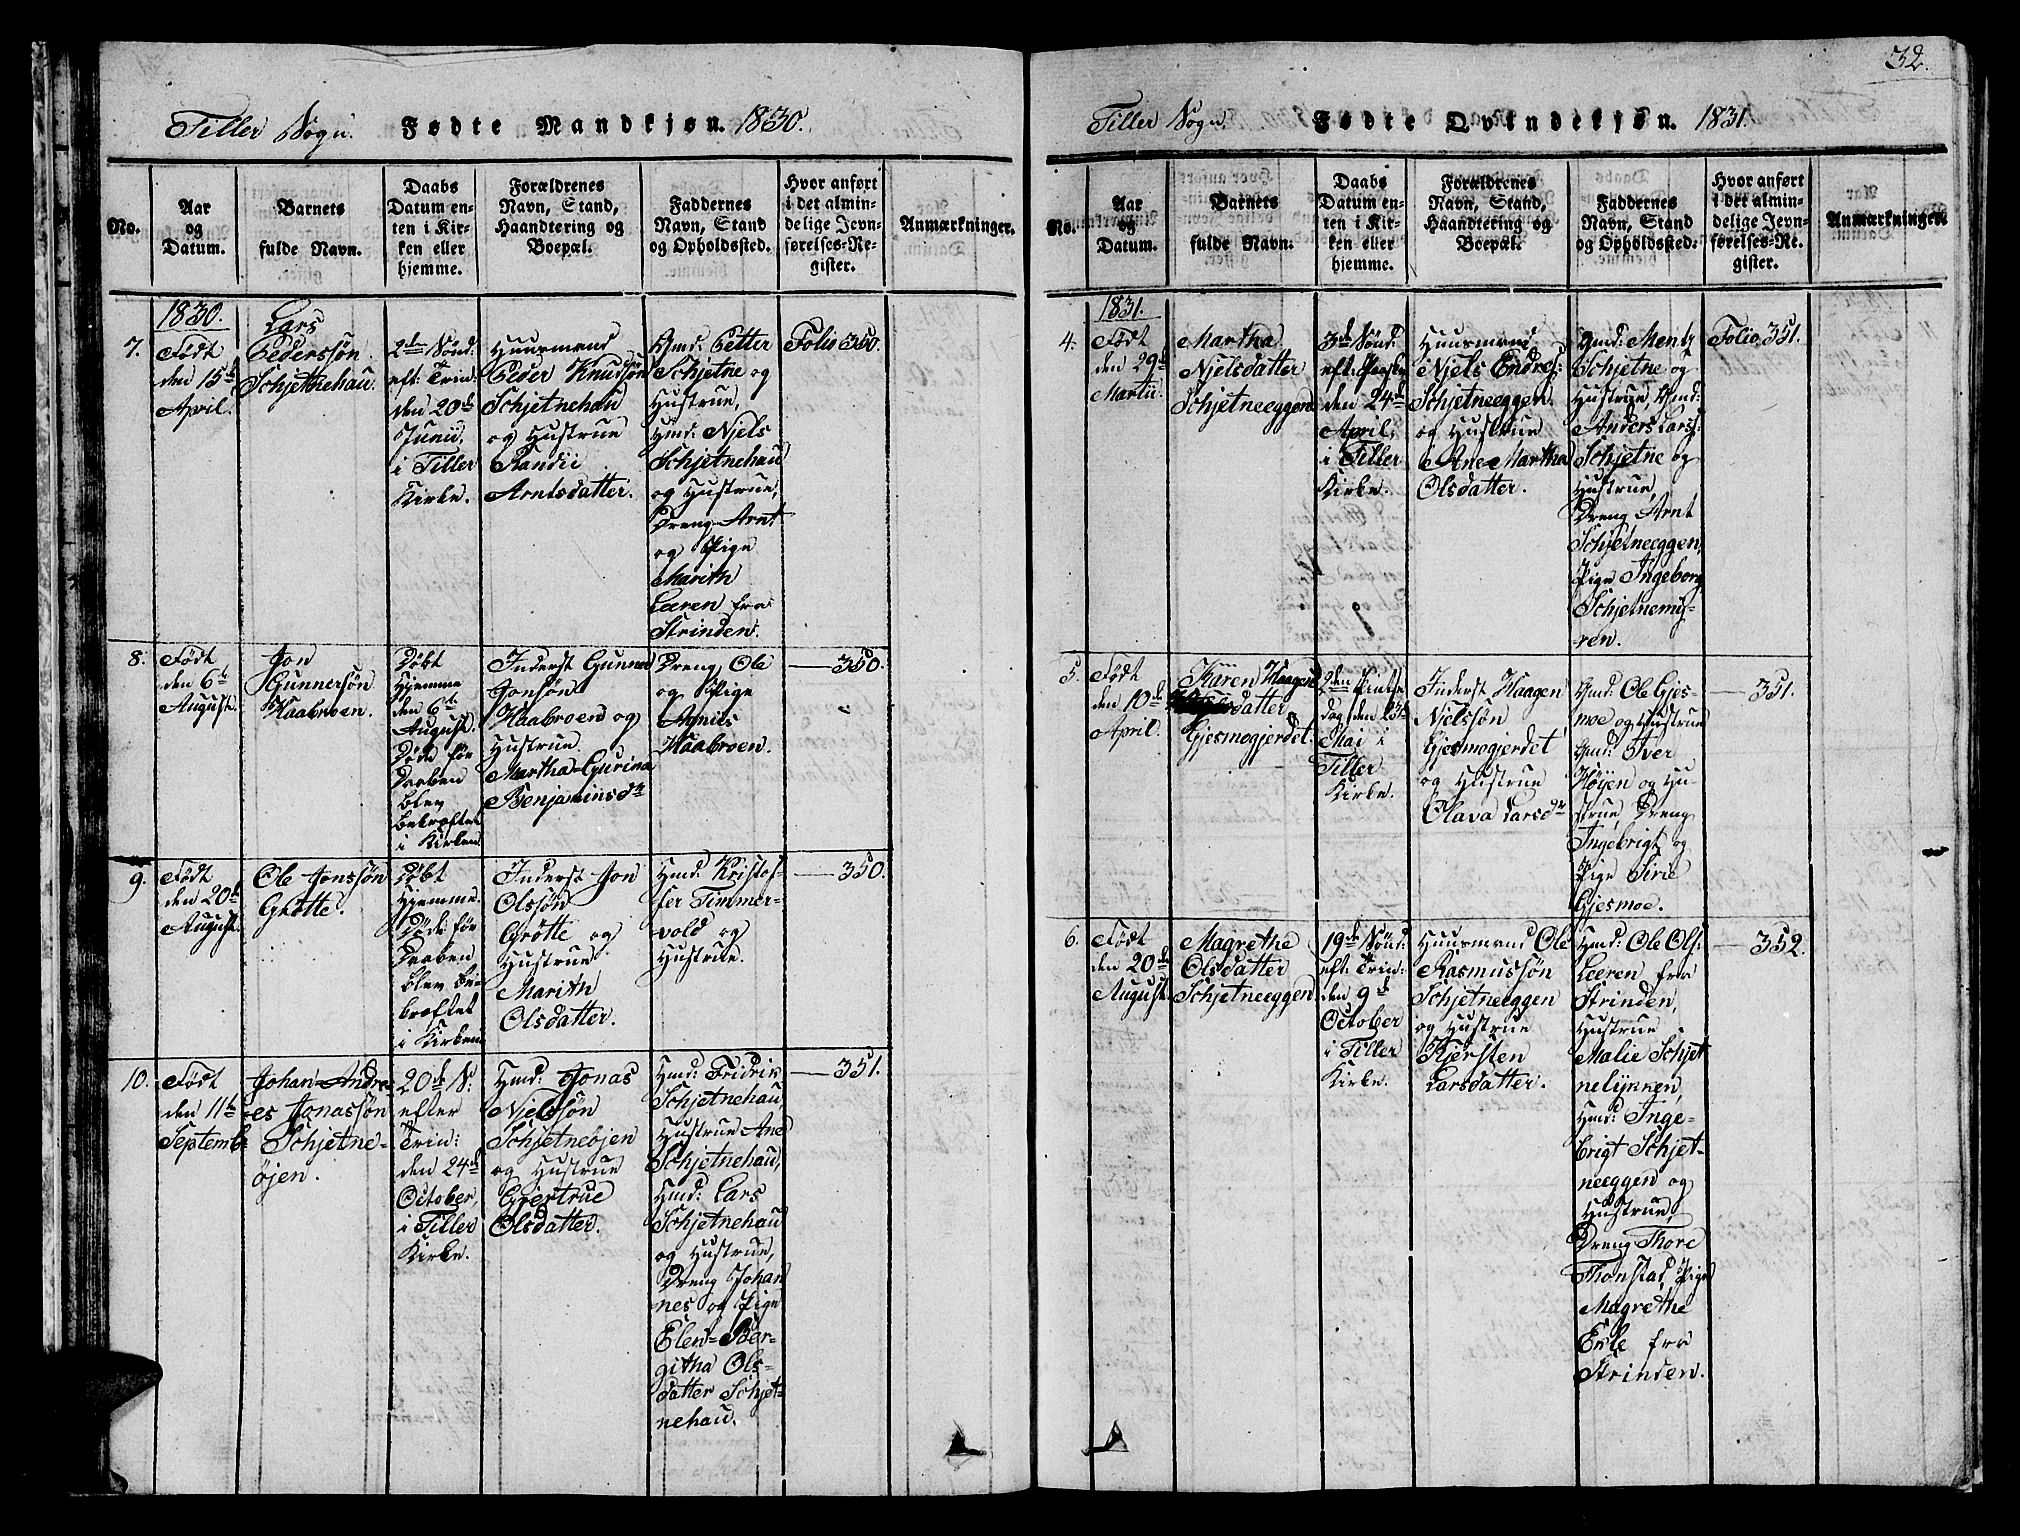 32.
Tiller Sogn. Fødte Mandkjøn. 1830.
No.
Aar
og
Datum.
Barnets
fulde Navn.
Daabs
Datum en-
ten i Kir-
ken eller
hjemme.
Forældrenes
Navn, Stand,
Haandtering og
Boepæl.
Faddernes
Navn, Stand
og Opholdssted.
Hvor anført
i det almin-
delige Jevn-
førelses-Re-
gister.
Anmærkninger.
1830.
7.
Født
den 15de
April.
Lars
Pederssøn
Schjetnehau.
2den Sönd:
eft: Trin:
den 20de
Junii,
i Tiller
Kirke.
Huusmand
Peder Knudsøn
Schjetnehau
og Hustrue
Randii
Arntsdatter.
Gmd: Petter
Schjetne og
Hustrue,
Hmd: Njels
Schjetnehau
og Hustrue,
Dreng Arnt
og Pige
Marith
Leeren fra
Strinden.
Folio 350.
8.
Født
den 6te
August.
Jon
Gunnersøn
Kaabroen.
Döbt
Hjemme
den 6te
August.
Döde för
Daaben
blev
bekræftet
i Kirken.
Inderst Gunner
Jonsøn
Kaabroen og
Hustrue
Martha Gurina
Benjaminsdr
Dreng Ole
og Pige
Agnis
Kaabroen.
350.
9.
Født
den 20de
August.
Ole Jonssøn
Grøtte.
Döbt
Hjemme.
Döde för
Daaben
blev be-
kræftet
i Kirken.
Inderst Jon
Olssøn
Grøtte og
Hustrue
Marith
Olsdatter.
Hmd: Kristof-
fer Timmer-
vold og
Hustrue.
350.
10.
Født
den 11te
Septemb:
Johan Andre-
es Jonassøn
Schjetne-
øjen.
20de S:
efter
Trin:
den 24de
October,
i Tiller
Kirke.
Hmd: Jonas
Njelssøn
Schjetneøjen
og Hustrue
Gjertrue
Olsdatter.
Hmd: Fridrik
Schjetnehau,
Hustrue Ane
Schjetnehau,
Hmd: Lars
Schjetnehau
og Hustrue,
Dreng Johan
nes og Pige
Elen-Ber-
githa Ols-
datter Schjet-
nehau.
351.
Tiller Sogn. Fødte Qvindekjøn. 1831.
No.
Aar
og
Datum.
Barnets
fulde Navn.
Daabs
Datum en-
ten i Kir-
ken eller
hjemme.
Forældrenes
Navn, Stand,
Haandtering og
Boepæl.
Faddernes
Navn, Stand
og Opholdssted.
Hvor anført
i det almin-
delige Jevn-
førelses-Re-
gister.
Anmærkninger.
1831.
4.
Født
den 29de
Martii.
Martha
Njelsdatter
Schjetneeggen
3die Sönd:
eft: Paaske
den 24de
April,
i Tiller
Kirke.
Huusmand
Njels Endres:
Schjetneeggen
og Hustrue
Ane Martha
Olsdatter.
Gmd: Mentz
Schjetne og
Hustrue, Gmd:
Anders Lars:
Schjetne og
Hustrue,
Dreng Arnt
Schjetneeggen,
Pige Ingeborg
Schjetnemy-
ren.
Folio 351.
5.
Født
den 10de
April.
Karen Haagens
datter
Gjesmogjerdet.
2den Pintse
dag den 23de
Mai i
Tiller
Kirke.
Inderst Haagen
Njelssøn
Gjesmogjerdet
og Hustrue
Olava Larsdr
Gmd: Ole Gjes-
moe og Hustrue
Gmd: Iver
Höyen og Hu-
strue, Dreng
Ingebrigt og
Pige Sirie
Gjesmoe.
351.
6.
Født
den 20de
August.
Magrethe
Olsdatter
Schjetneeggen
19de Sönd:
eft: Trin:
den 9de
October
i Tiller
Kirke.
Huusmand Ole
Rasmussøn
Schjetneeggen
og Hustrue
Kjersten
Larsdatter.
Hmd: Ole Ols:
Leeren fra
Strinden,
Hustrue
Malie Schjet
nelykken,
Hmd: Inge-
brigt Schjet-
neeggen og
Hustrue,
Dreng Thore
Thonstad, Pige
Magrethe
Evle fra
Strinden.
352.